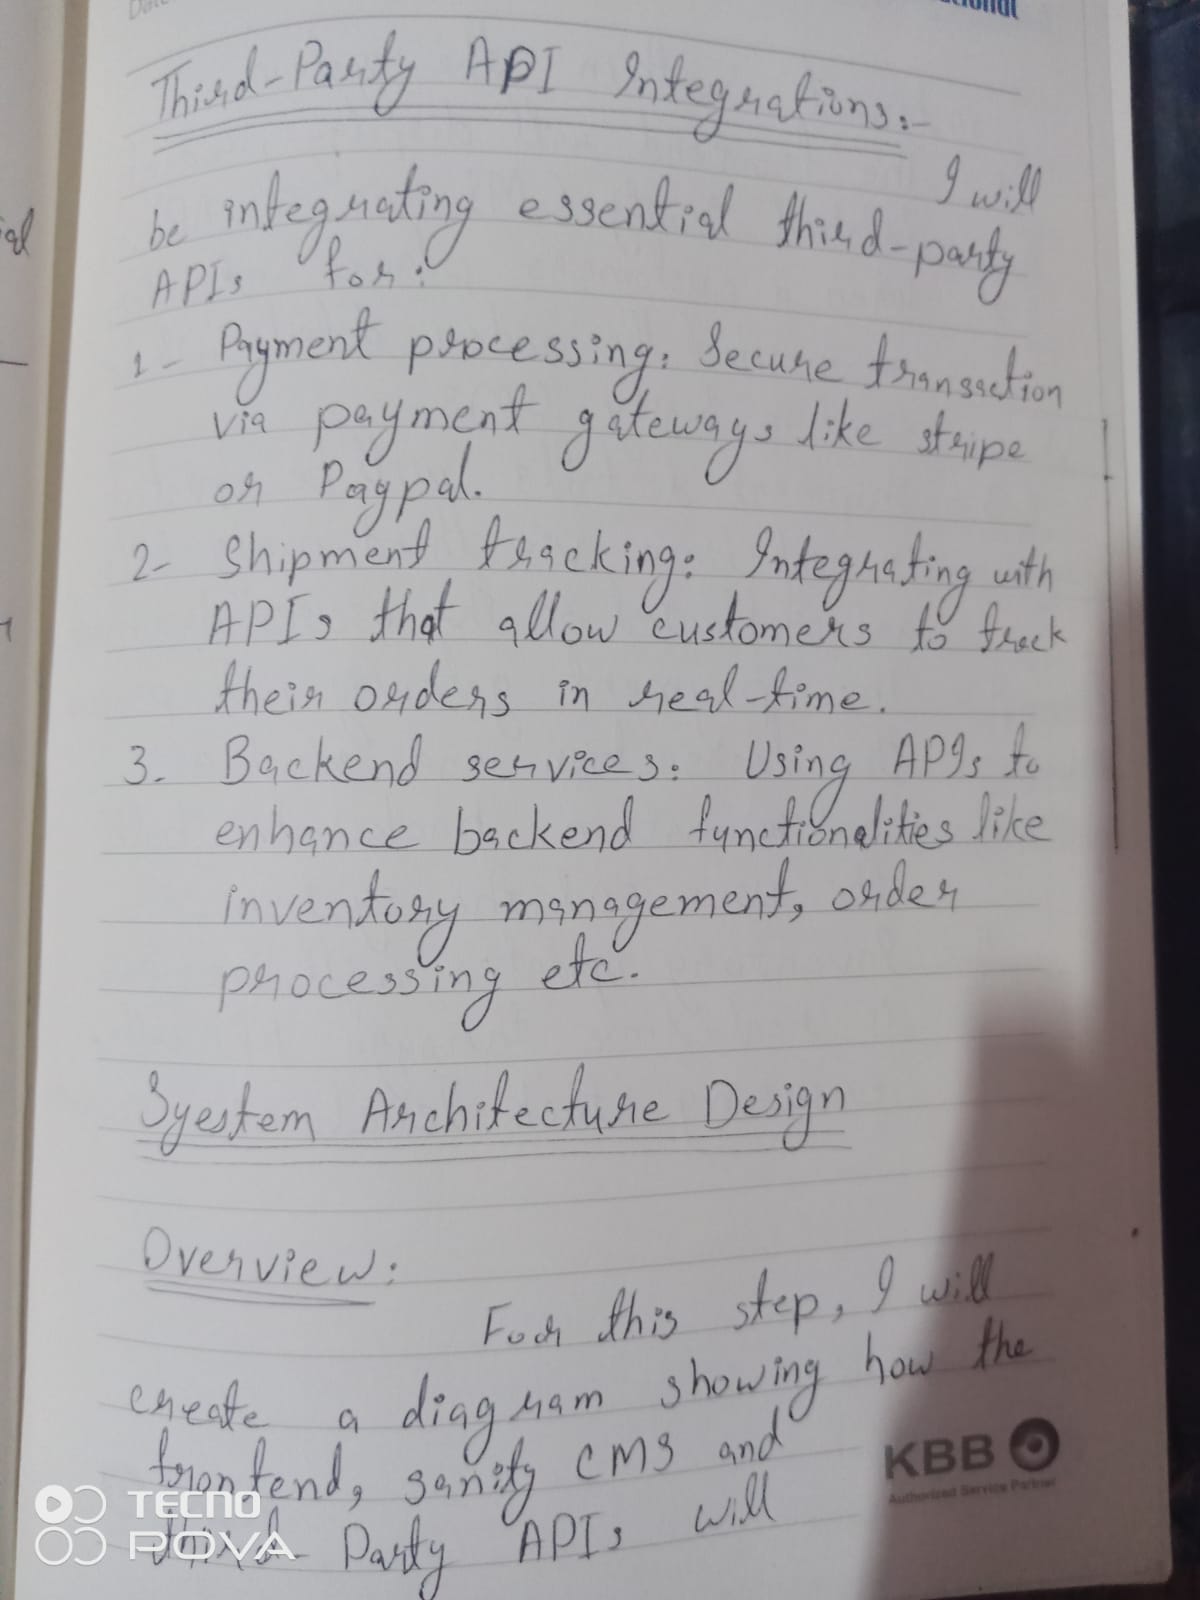 Third-Party API Integrations:-
I will
be integrating essential third-party
APIs for:
1- Payment processing: Secure transaction
via payment gateways like stripe
or Paypal.
2- Shipment tracking: Integrating with
APIs that allow customers to track
their orders in real-time.
3. Backend services: Using APIs to
enhance backend functionalities like
inventory management, order
processing etc.
Syestem Architecture Design
Overview:
For this step, I will
create a diagram showing how the
frontend, sanity CMS and
third-Party APIs will
KBB
Authorized Service Partner
TECNO
POVA